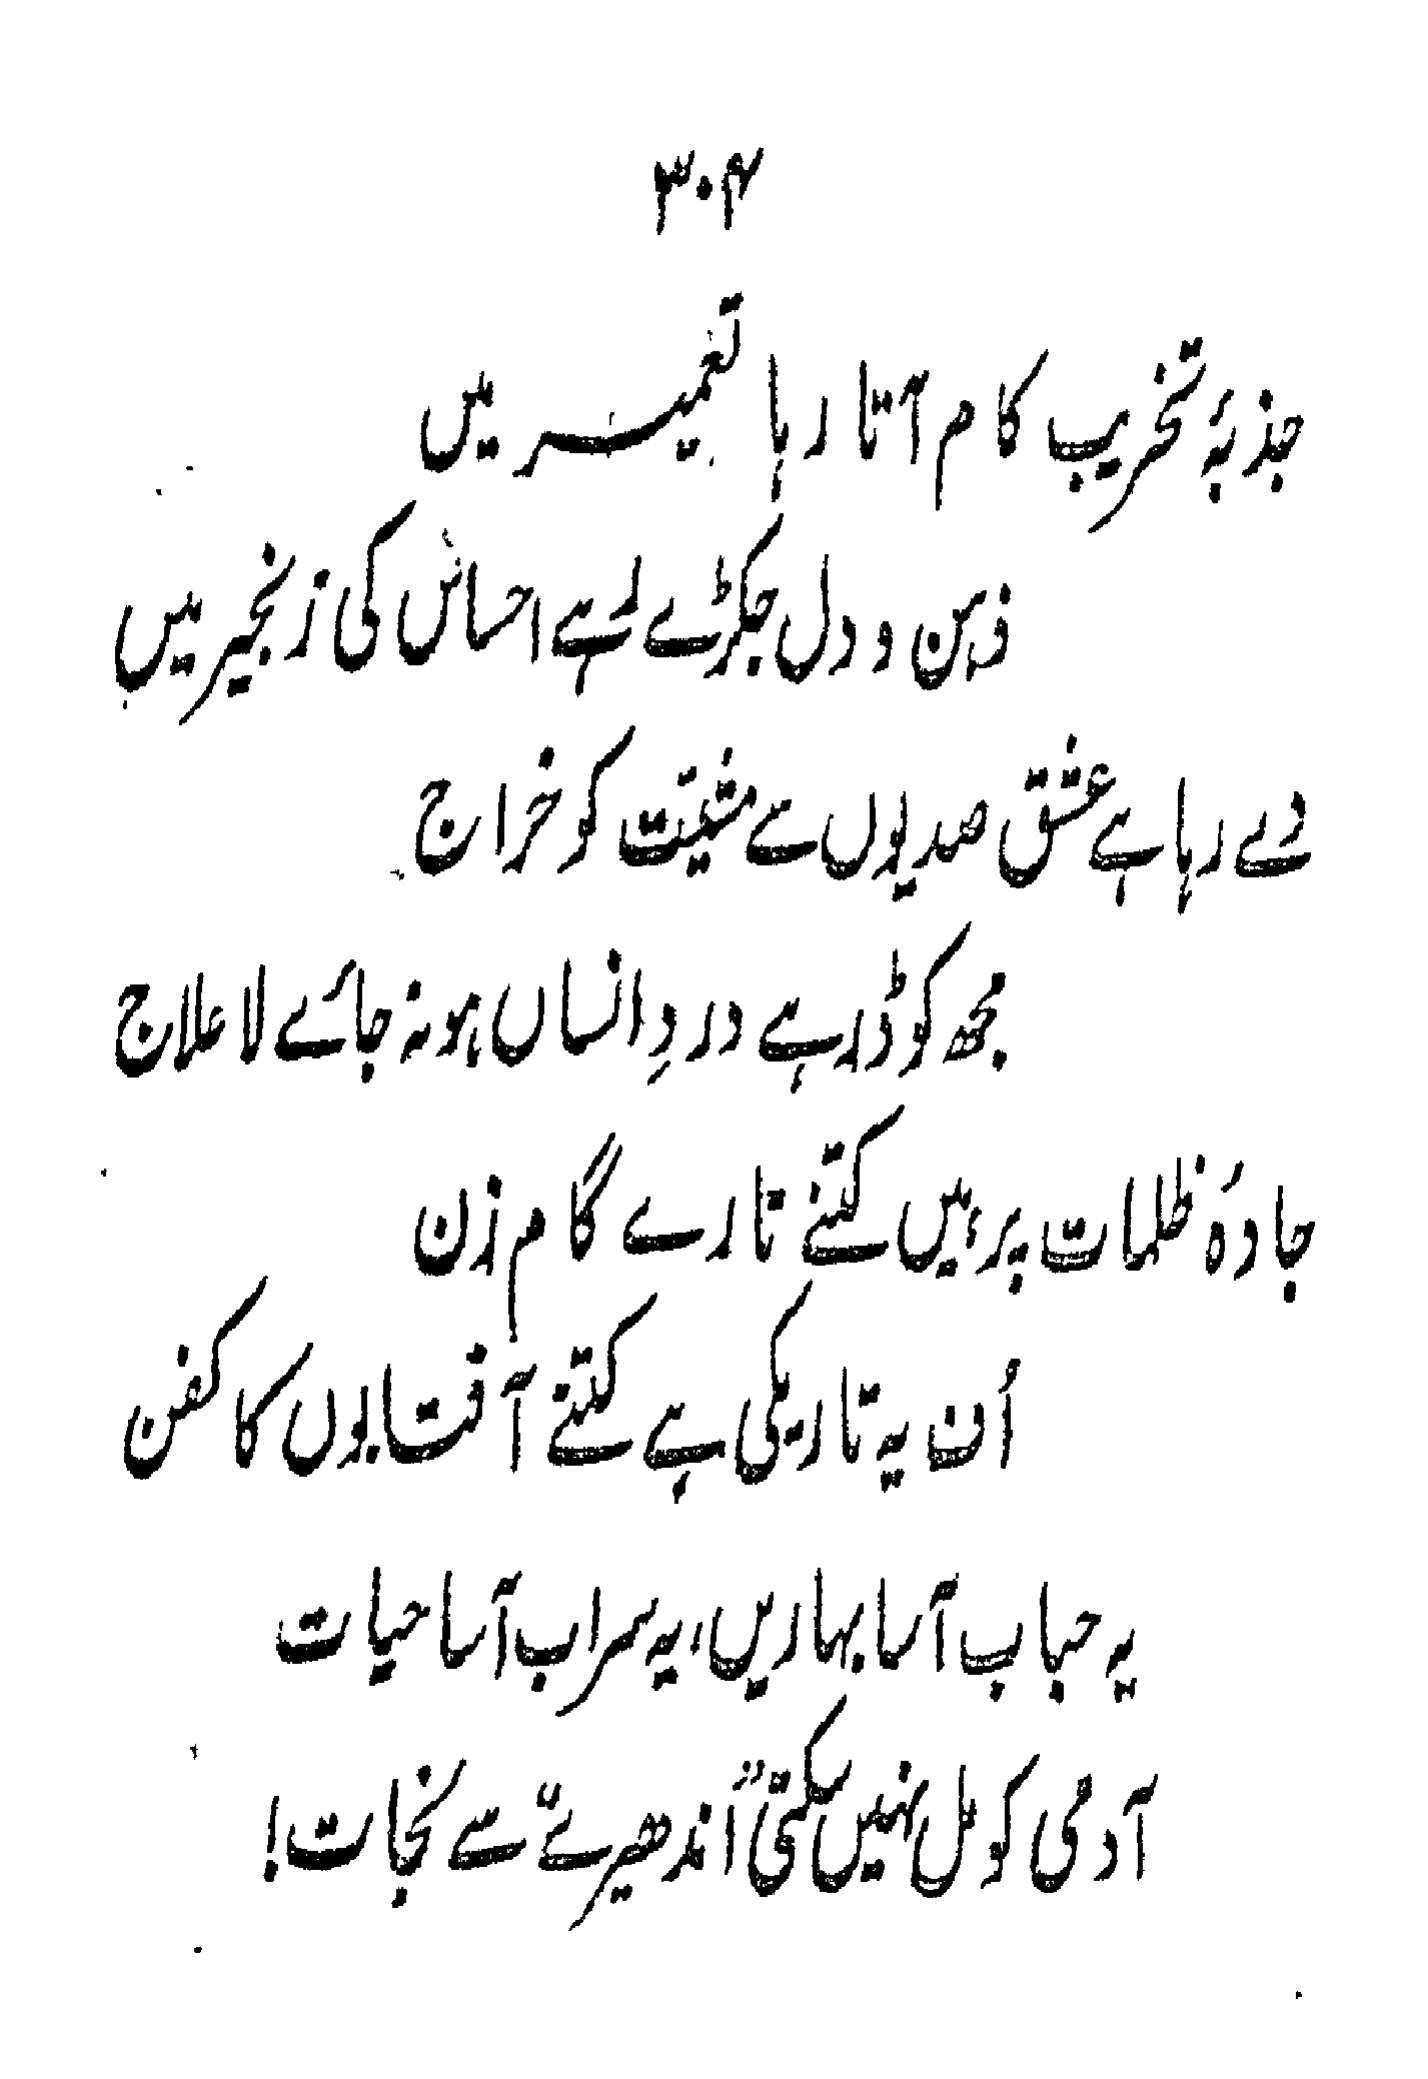 ۳۰۴
جذبۂ تخریب کام آتا رہا تعمیر میں
ذہن و دل جکڑے لہے احساس کی زنجیر میں
دے رہا ہے عشق صدیوں سے مشیّت کو خراج
مجھ کو ڈر ہے دردِ انساں ہو نہ جائے لا علاج
جادۂ ظلمات پر، ہیں کتنے تارے گام زن
اُف یہ تاریکی ہے کتنے آفتابوں کا کفن
یہ حباب آسا بہاریں، یہ سراب آسا حیات
آدمی کو مل نہیں سکتی "اندھیرے" سے نجات!